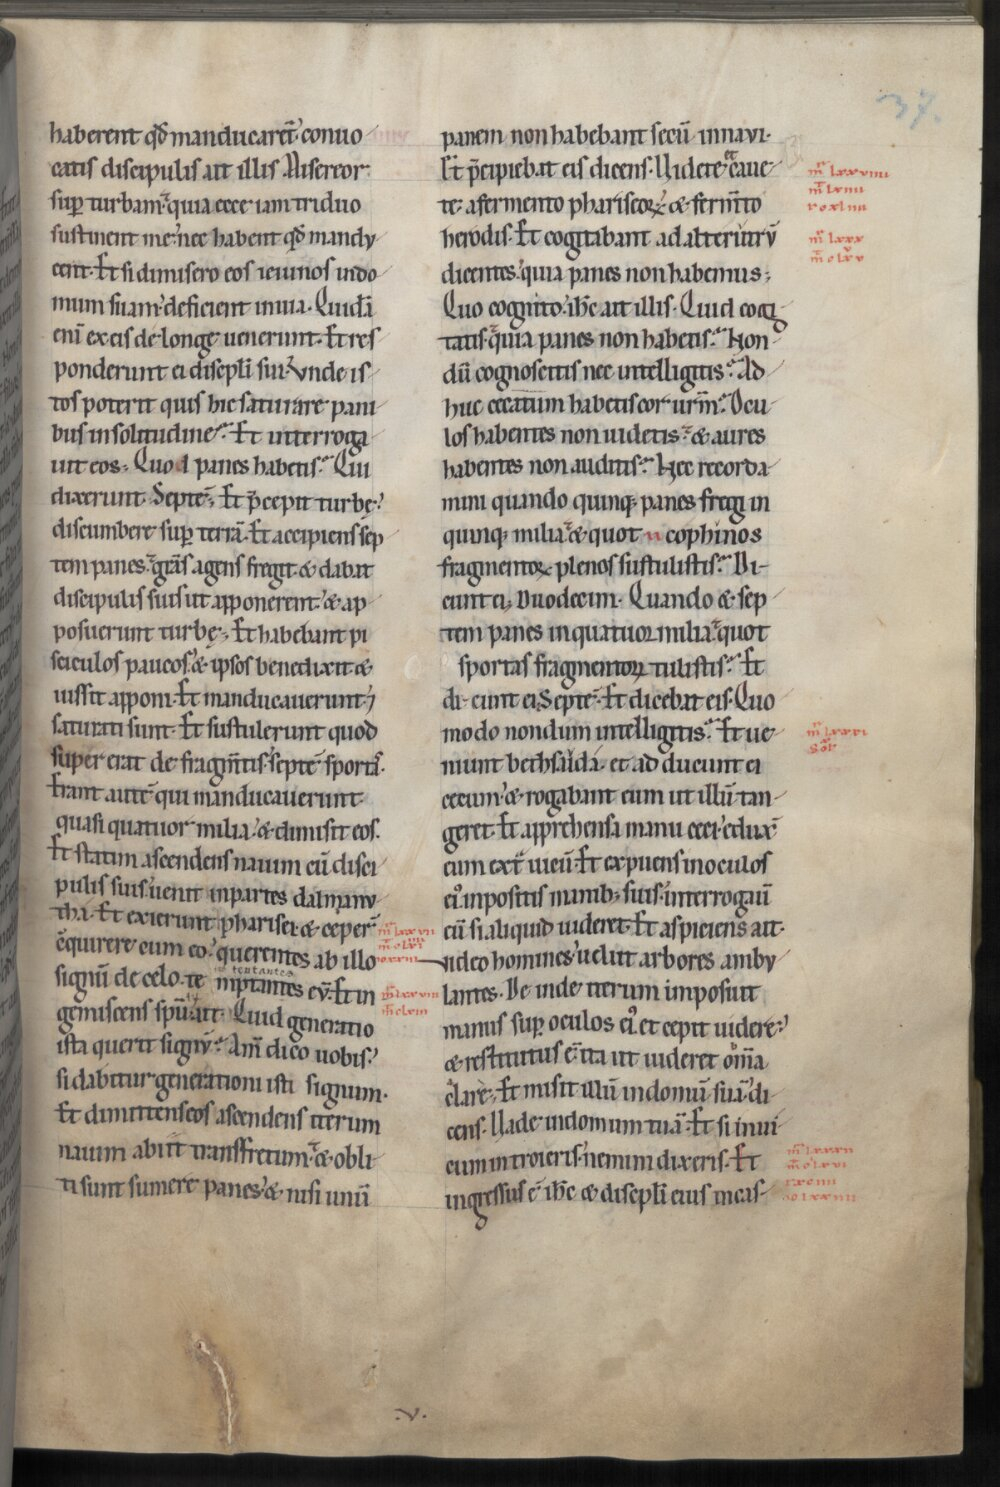 37.
haberent qd manducarēt. conuo
catis discipulis ait illis Misereor
sup turbam. quia ecce iam triduo
sustinent me. nec habent qd mandu
cent. Et si dimisero eos ieiunos in do
mum suam. deficient in uia. Quidā
enī ex eis de longe uenerunt. Et res
ponderunt ei discpli sui. Vnde is
tos poterit quis hic saturare pani
bus in solitudine. Et interroga
uit eos. Quod panes habetis. Qui
dixerunt. Septē. Et p̄cepit turbę.
discumbere sup terrā. Et accipiens sep
tem panes. grās agens fregit & dabat
discipulis suis ut apponerent. & ap
posuerunt turbę. Et habebant pi
sciculos paucos. & ipsos benedixit &
iussit apponi. Et manducauerunt. 7
saturati sunt. Et sustulerunt quod
super erat de fragm̄tis. septē sportas.
Erant autē qui manducauerunt
quasi quatuor milia. & dimisit eos.
Et statim ascendens nauim cū disci
pulis suis. uenit in partes dalmanu
tha. Et exierunt pharisei & ceper̄
c̄quirere cum eo. querentes ab illo
signū de celo. te mptantes eū. Et in
tentantes
gemiscens spū ait. Quid generatio
ista querit signū. Am̄ dico uobis.
si dabitur generationi isti signum.
Et dimittens eos ascendens iterum
nauim abiit transfretum. & obli
ti sunt sumere panes. & nisi unū
panem non habebant secū in naui.
Et p̄cipiebat eis dicens. Uidete & caue
te a fermento phariseoꝝ & ferm̄to
herodis. Et cogitabant ad alterutrū
dicentes. quia panes non habemus.
Quo cognito. ihc ait illis. Quid cogi
tatis. quia panes non habetis. Non
dū cognoscitis nec intelligitis. Ad
huc cecatum habetis cor ur̄m. Ocu
los habentes non uidetis. & aures
habentes non auditis. Nec recorda
mini quando quinq; panes fregi in
quinq; milia. & quot cophinos
fragmentoꝝ plenos sustulistis. Di-
cunt ei. Duodecim. Quando & sep
tem panes in quatuor milia. quot
sportas fragmentoꝝ tulistis. Et
di-cunt ei. Septē. Et dicebat eis. Quo
modo nondum intelligitis. Et ue
niunt bethsaida. et ad ducunt ei
cecum. & rogabant eum ut illū tan
geret. Et apprehensa manu ceci. edux̄
eum ext uicū. Et expuens in oculos
ei. inpositis manib; suis. interrogaū
eū si aliquid uideret. Et aspiciens ait.
uideo homines uelut arbores ambu
lantes. De inde iterum imposuit
manus sup oculos ei. et cepit uidere.
& restitutus ē ita ut uideret om̄a
clare. Et misit illū in domū suā. di
cens. Uade in domum tuā. Et si in ui
cum introieris. nemini dixeris. Et
ingressus ē ihc & discpli eius in cas-
.v.